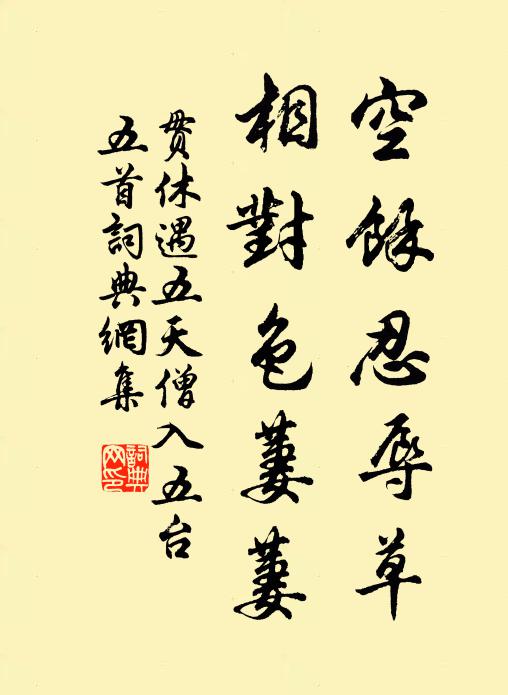 空餘忍辱草
相對色萋萋
貫休遇五天僧入五台
五首詞典網集
詞典網印